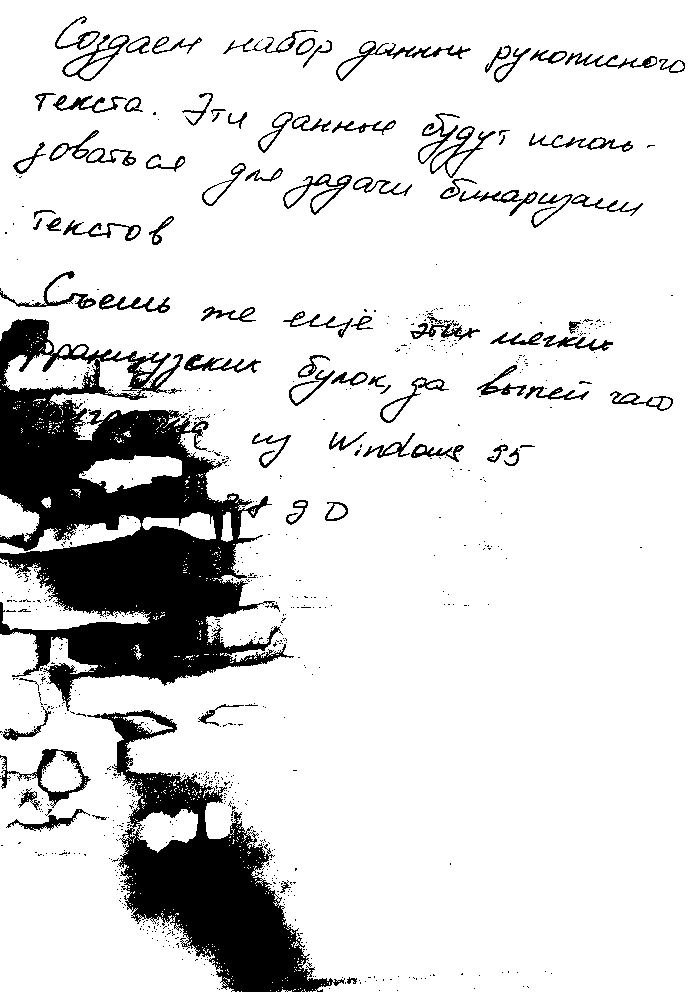 Создаем набор данных рукописного
текста. Эти данные будут исполь-
зоваться для задачи бинаризации
текстов
Съешь же ещё этих мягких
французских булок, да выпей чаю
из Windows 95
9 D